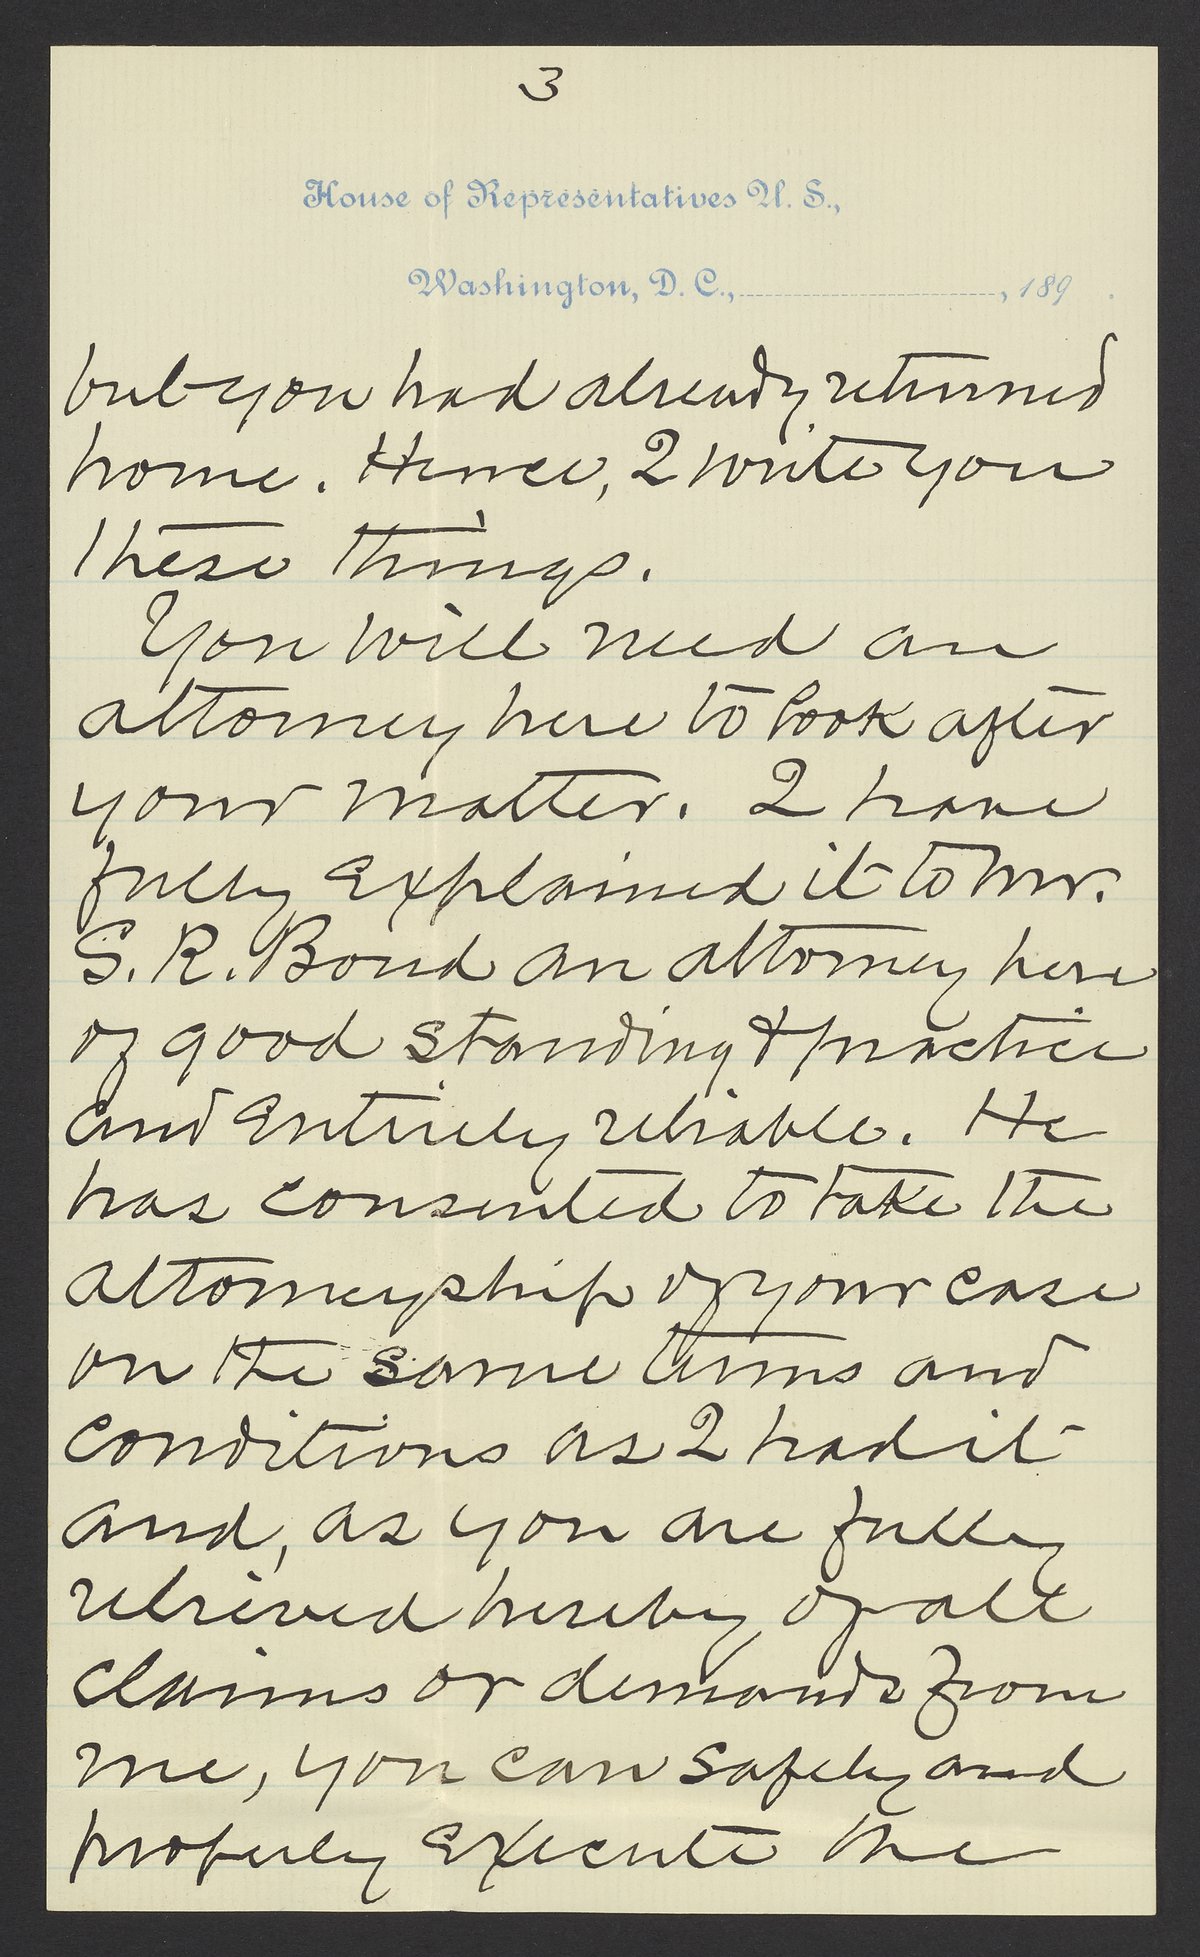 3
House of Representatives U. S.,
Washington, D. C., , 189 .
but you had already returned
home. Hence, I write you
these things.
You will need an
attorney here to look after
your matter. I have
fully explained it to Mr.
S. R. Bond an attorney here
of good standing & practice
and entirely reliable. He
has consented to take the
attorneyship of your case
on the same terms and
conditions as I had it
and, as you are fully
relieved hereby of all
claims or demands from
me, you can safely and
properly execute the